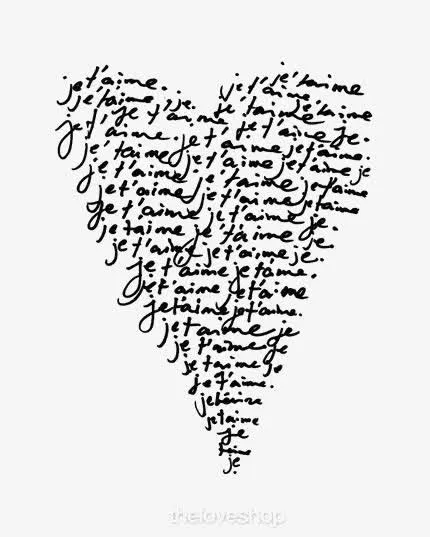 je t'aime
je t'aime.
je t'aime je. je t'aime je t'aime
je t'aime. je t'aime je.
je t'aime je t'aime je t'aime.
je t'aime je t'aime je t'aime je
je t'aime je t'aime je t'aime
je t'aime je t'aime je t'aime
je t'aime je t'aime je.
je t'aime je t'aime je
je t'aime je t'aime je.
je t'aime je t'aime.
je t'aime je t'aime
je t'aime je t'aime.
je t'aime je
je t'aime je
je t'aime je
je t'aime.
je t'aime
je
t'aime
je
theloveshop